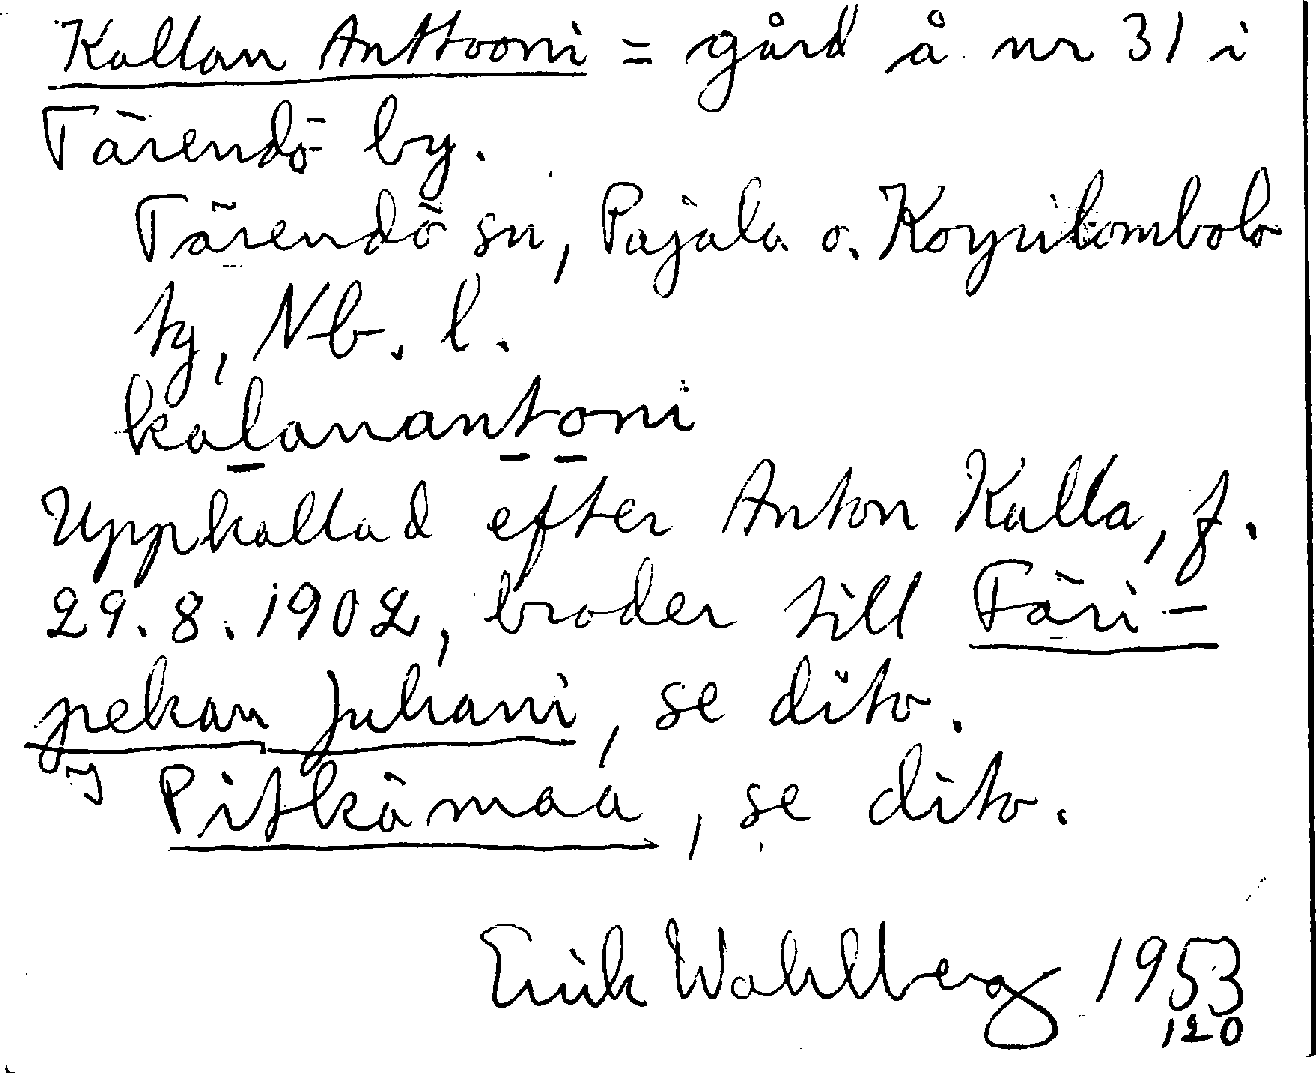 Kallan Anttooni = gård å nr 31 i
Tärendö by.
Tärendö sn, Pajala o. Korpilombolo
tg, Nb. l.
kalanantoni
Uppkallad efter Anton Kalla, f.
29.8.1902, broder till Färi-
pekan Juhani, se dito.
Pitkämaa, se dito.
Erik Wahlberg 1953
120